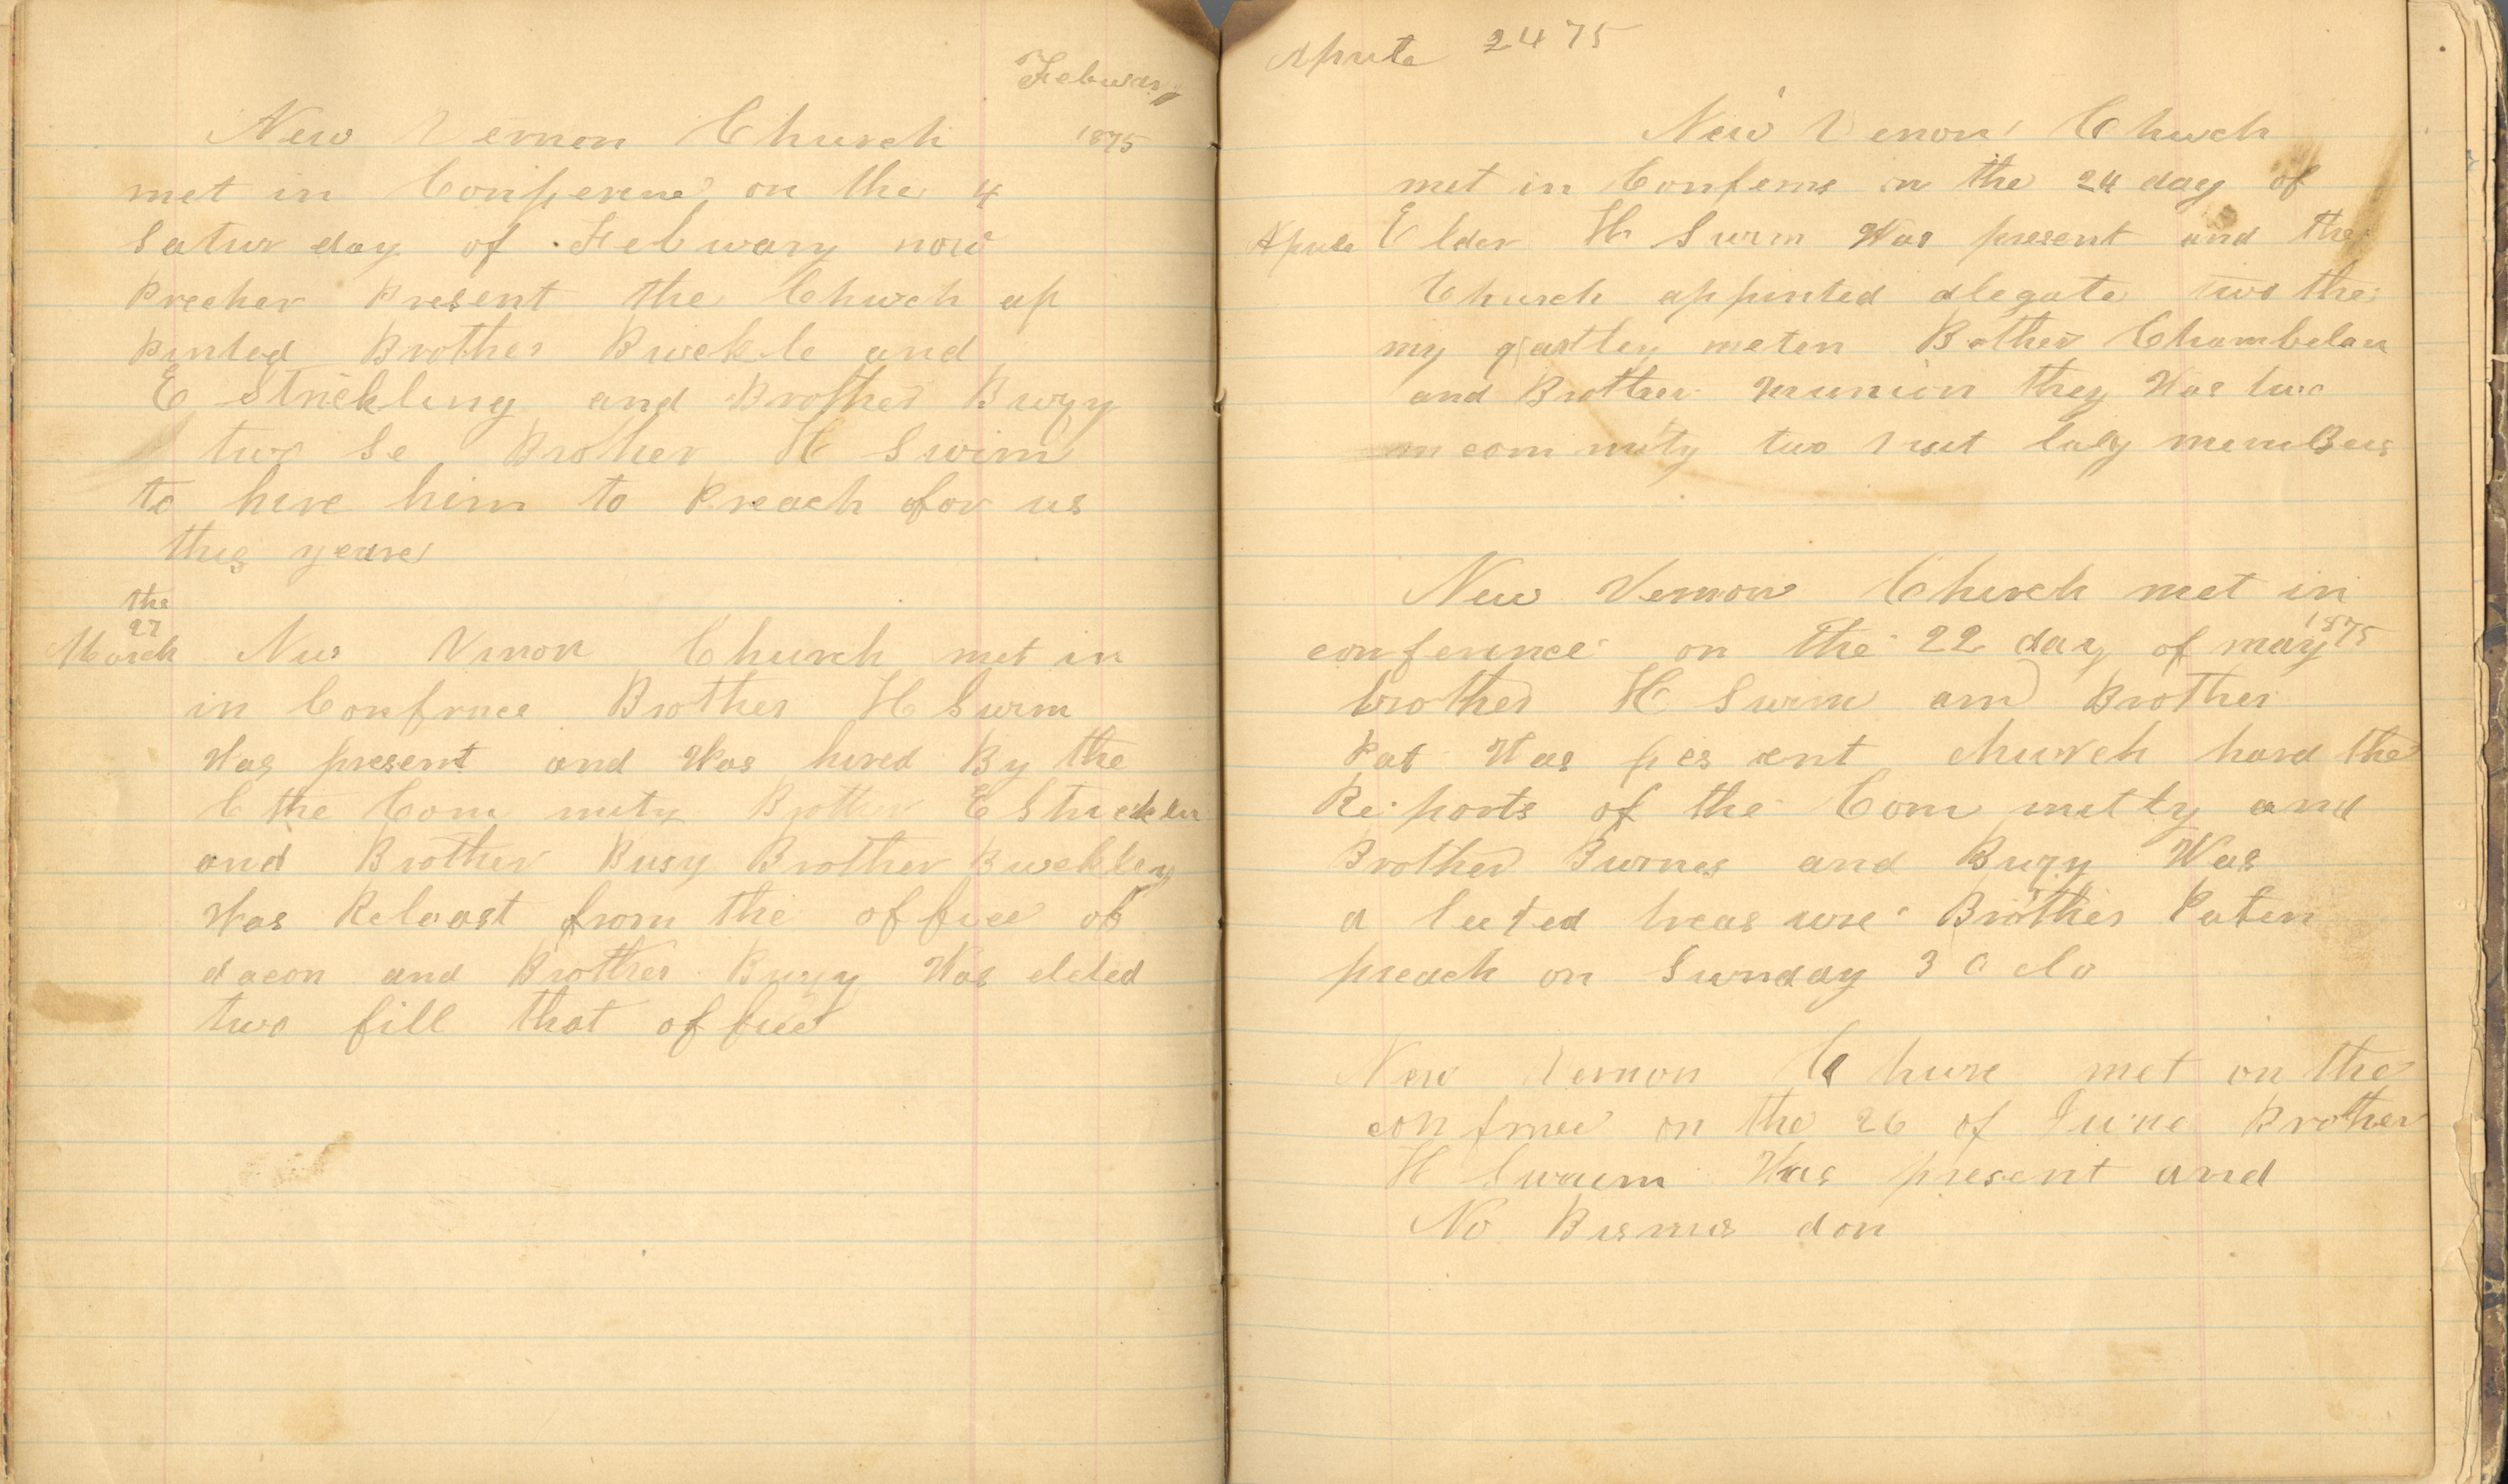 Februar,
New Vernon Church 1875
met in Conferene on the 4
Satur day of Februrary now
Precher Present the Church ap
Pinted Brother Buckle and
E Strickling and Brother Buzy
two Se Brother H Swim
to hire him to Preach for us
this yeare
the
27
March New Vrnon Church met in
in Confrnce Brother H Swim
Was present and Was hired By the
C the Com mity Brother E Stricklen
and Brother Busy Brother Buckley
Was Releast from the offiee of
dacon and Brother Buzy Was elcted
two fill that offiee
Aprile 24 75
New Venon Church
met in Conferns on the 24 day of
Aprile Elder H Swim Was present and the
Church appinted dlegate two the
my meten Bother Chambelan
and Brother they Was two
in com mity two visit members
New Vernon Church met in
conference on the 22 day of may 1875
75
brother H Swim and Brother
Pat Was pes ent church hard the
Reports of the Com mitty and
Brother Burnes and Buzy Was
a lected treas ure Brother Paten
preach on Sunday 3 O clo
New Vernon Churc met on the
con frnce on the 26 of June Brother
H Swaim Was present and
No Bisnus don